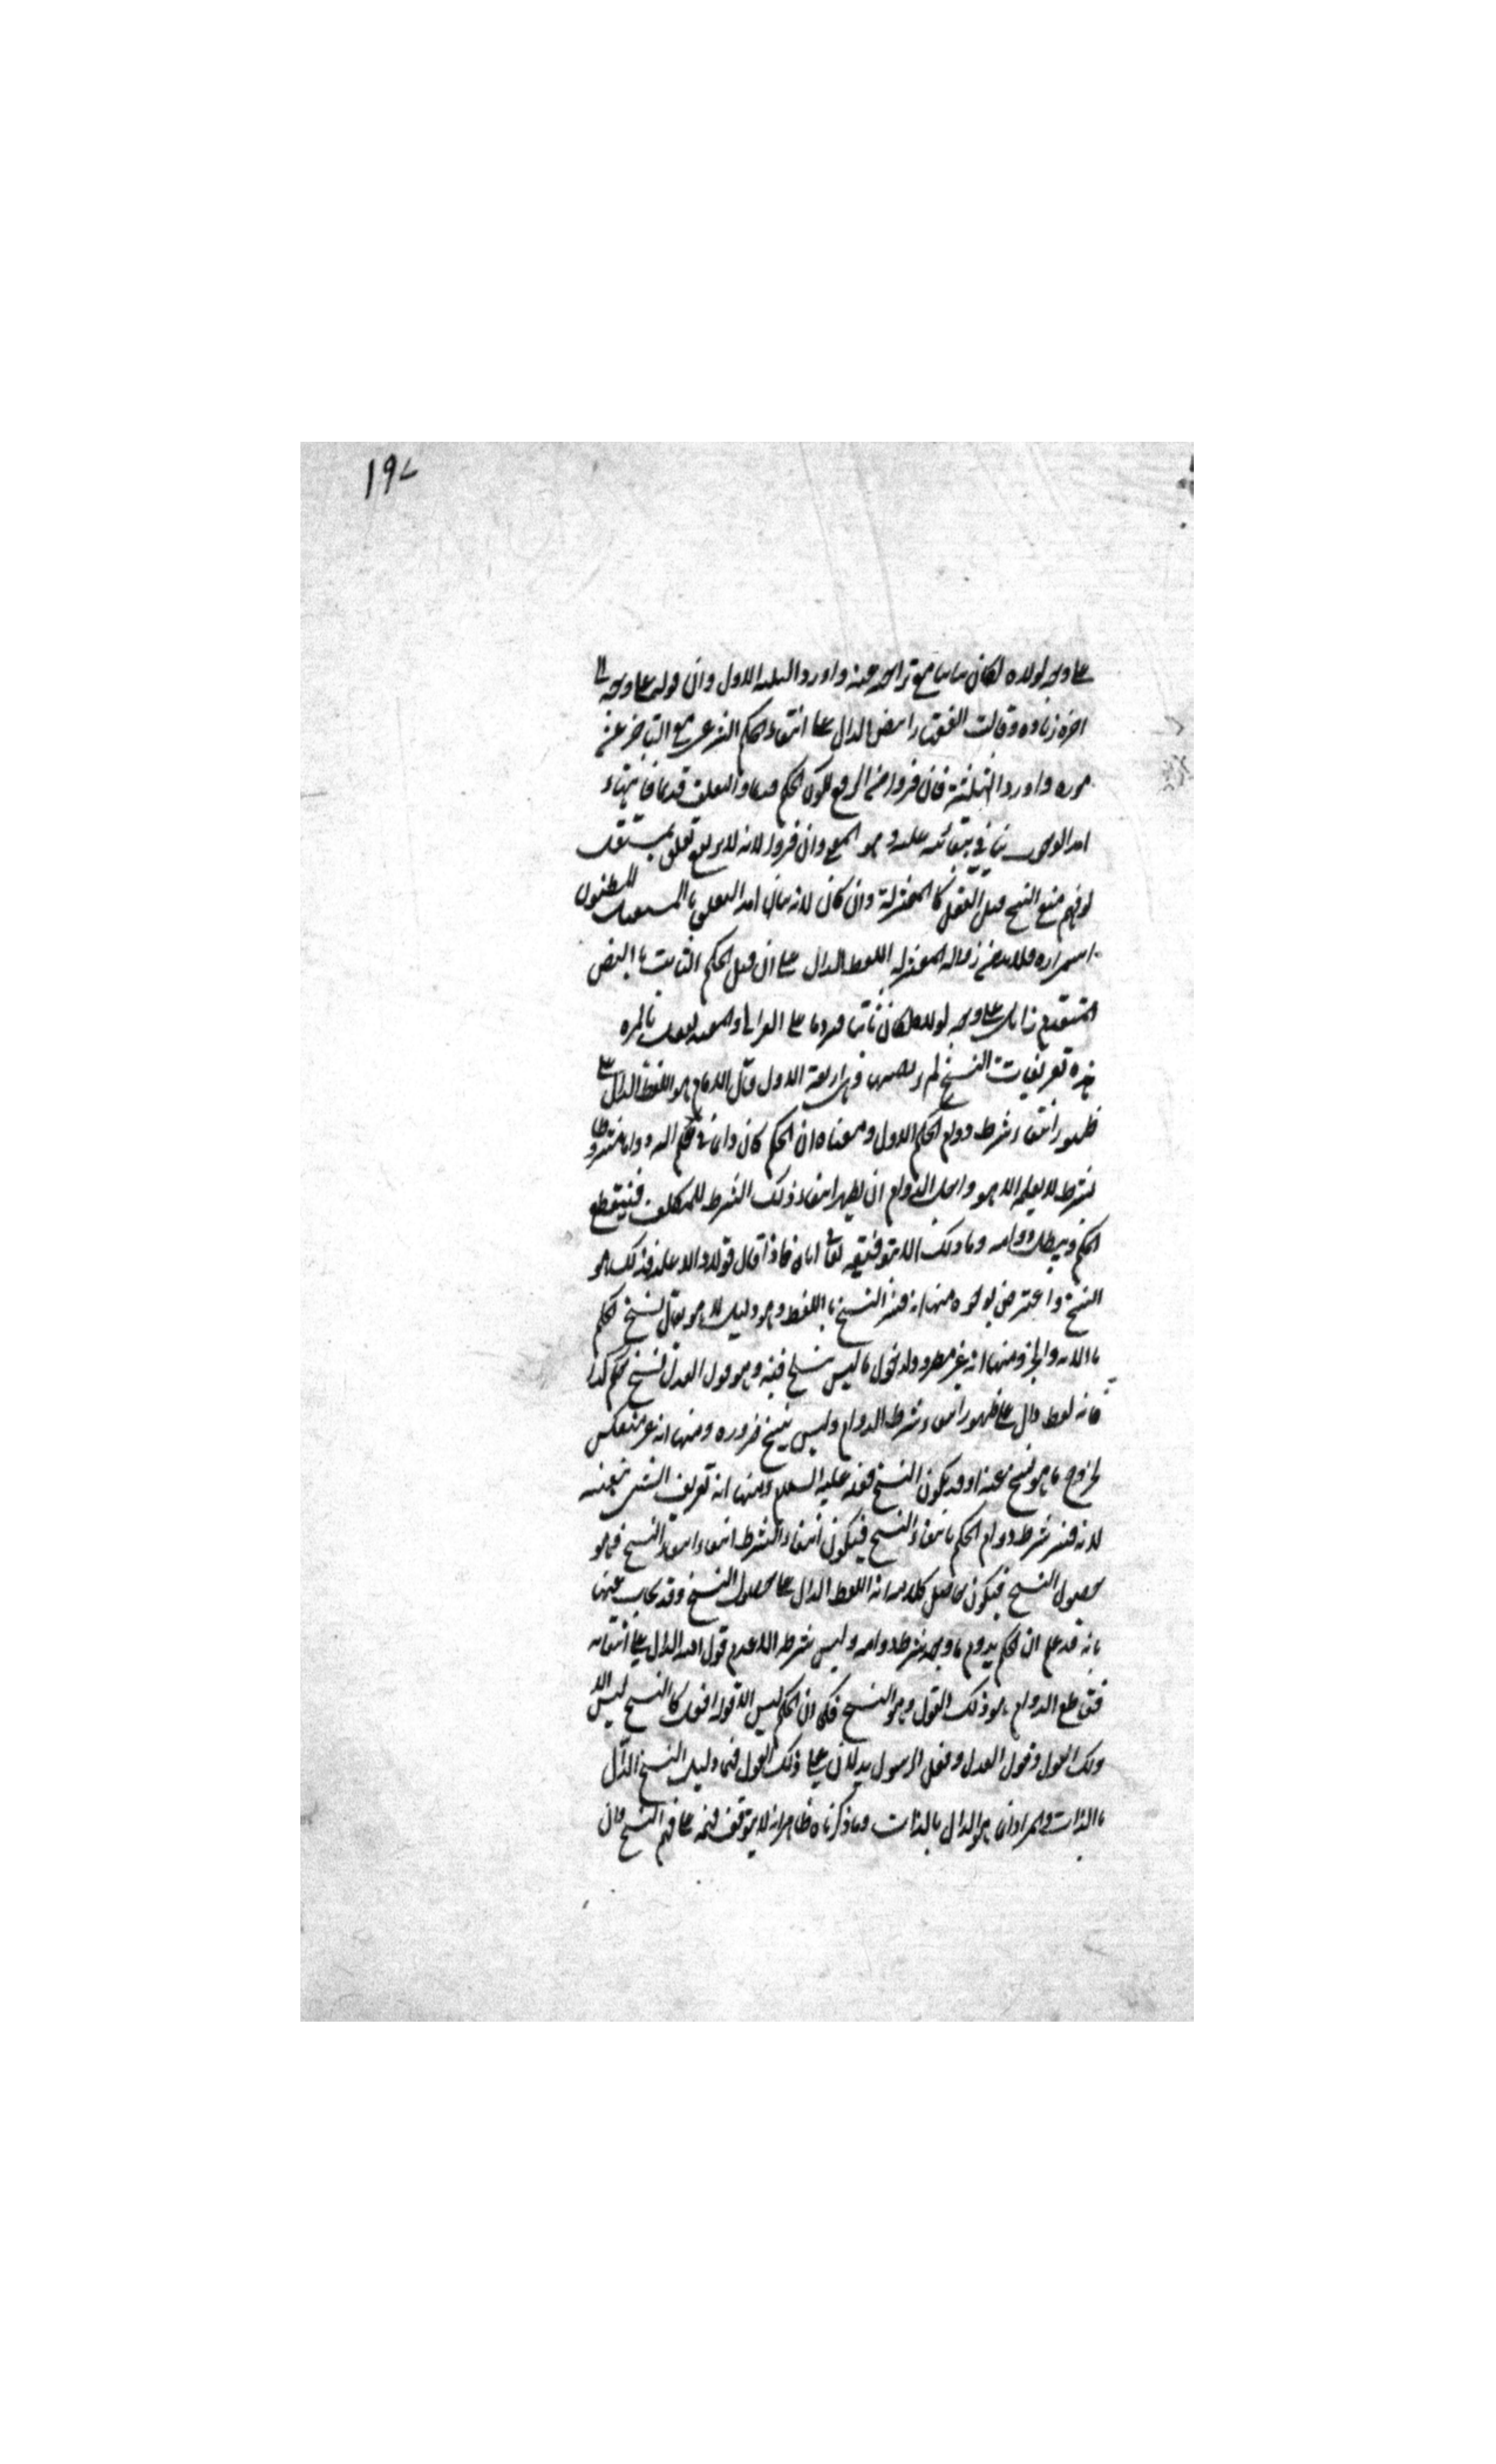 ١٩٧
على وجه لولاه لكان ثابتا مع تراخيه عنه واورد الثلثة الاول وان قوله على وجه الى
اخره زيادة وقالت الفقهاء النص الدال على انتهاء الحكم الشرعي مع التاخر عن
مورده واورد الثلثة فان فروا من الرفع لكون الحكم قديما والتعلق قديما فانتهاء
امد الوجوب ينافي بقائه عليه وهو المعنى وان فروا لانه لا يرتفع تعلق بمستقبل
لزمهم منع النسخ قبل الفعل كالمعتزلة وان كان لانه بيان امد التعلق بالمستقبل المظنون
استمراره فلا بد من زواله المعتزلة اللفظ الدال على ان مثل الحكم الثابت بالنص
المتقدم زايل على وجه لولاه لكان ثابتا
هذه تعريفات النسخ وهي اربعة الاول قال الامام هو اللفظ الدال على
ظهور انتفاء شرط دوام الحكم الاول ومعناه ان الحكم كان دائما في علم الله دواما مشروطا
بشرط لا يعلمه الا هو واجل الدوام ان يظهر انتفاء ذلك الشرط للمكلف فينقطع
الحكم ويبطل دوامه وما ذلك الا بتوفيقه تعالى اياه فاذا قال قولا دالا عليه فذلك هو
النسخ واعترض بوجوه منها انه فسر النسخ باللفظ وهو دليله لا هو يقال نسخ الحكم
بالاية والخبر ومنها انه غير مطرد لدخول ما ليس بنسخ فيه وهو قول العدل نسخ حكم كذا
فانه لفظ دال على ظهور انتفاء شرط الدوام وليس بنسخ ضرورة ومنها انه غير منعكس
لخروج ما هو نسخ عنه اذ قد يكون النسخ بفعله عليه السلام ومنها انه تعريف الشئ بنفسه
لانه فسر شرط دوام الحكم بانتفاء النسخ فيكون انتفاء الشرط انتفاء انتفاء النسخ فهو
حصول النسخ فيكون حاصل كلامه انه اللفظ الدال على حصول النسخ وقد يجاب عنها
بانه قد علم ان الحكم يدوم ما وجد شرط دوامه وليس شرطه الا عدم قول الله الدال على انتفائه
فقاطع الدوام هو ذلك القول وهو النسخ فكما ان الحكم ليس الا قوله افعل كان النسخ ليس الا
ذلك القول وقول العدل وفعل الرسول يدلان على ذلك القول فهما دليل النسخ الدال
بالذات والمراد ان هو الدال بالذات وما ذكرناه ظاهر انه لا يتوقف فهمه على فهم النسخ وان